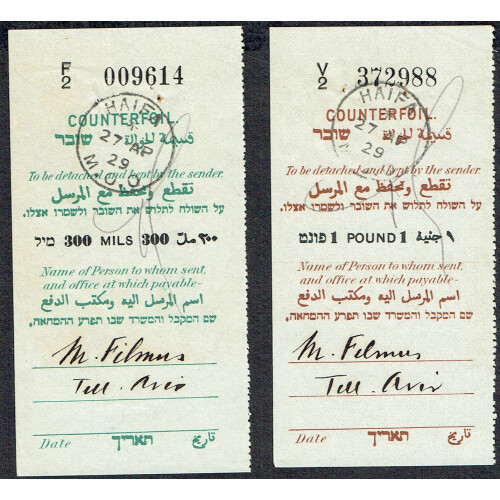 F/2 009614
COUNTERFOIL.
قسيمة للحوالة שובר
HAIFA
27 AP
29
To be detached and kept by the sender.
تقطع وتحفظ مع المرسل
על השולח לתלוש את השובר ולשמרו אצלו.
מיל 300 MILS 300 مل ٣٠٠
Name of Person to whom sent,
and office at which payable-
اسم المرسل اليه ومكتب الدفع
שם המקבל והמשרד שבו תפרע ההמחאה.
M. Filmus
Tell. Aviv
Date תאריך تاريخ
V/2 372988
COUNTERFOIL.
قسيمة للحوالة שובר
HAIFA
27 AP
29
To be detached and kept by the sender.
تقطع وتحفظ مع المرسل
על השולח לתלוש את השובר ולשמרו אצלו.
פונט 1 POUND 1 جنية ١
Name of Person to whom sent,
and office at which payable-
اسم المرسل اليه ومكتب الدفع
שם המקבל והמשרד שבו תפרע ההמחאה.
M. Filmus
Tell. Aviv
Date תאריך تاريخ